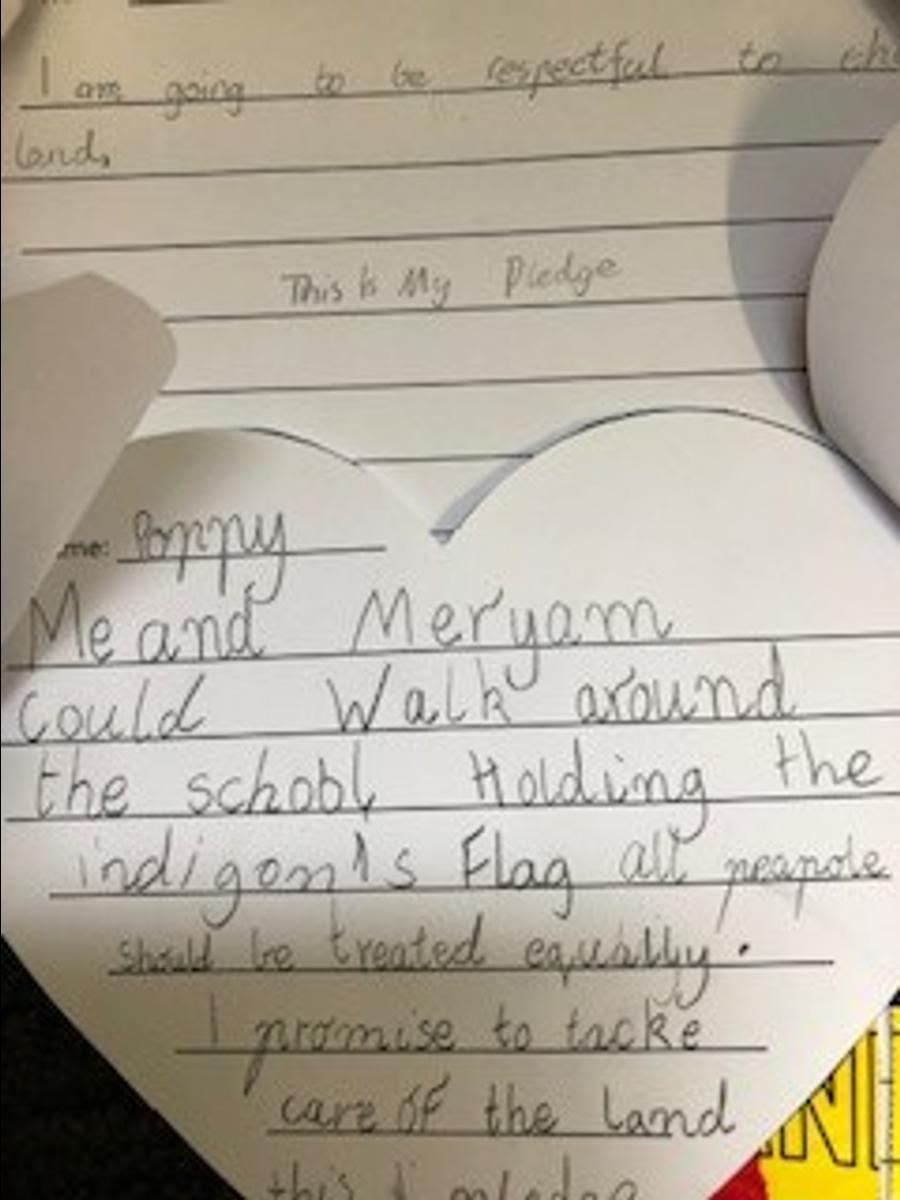 I am going to be respectful to the
land.
This Is My Pledge
me: Poppy
Me and Meryam
could Walk around
the school Holding the
indigon's Flag all peapole
should be treated equally.
I promise to tacke
care of the land
this I pledge